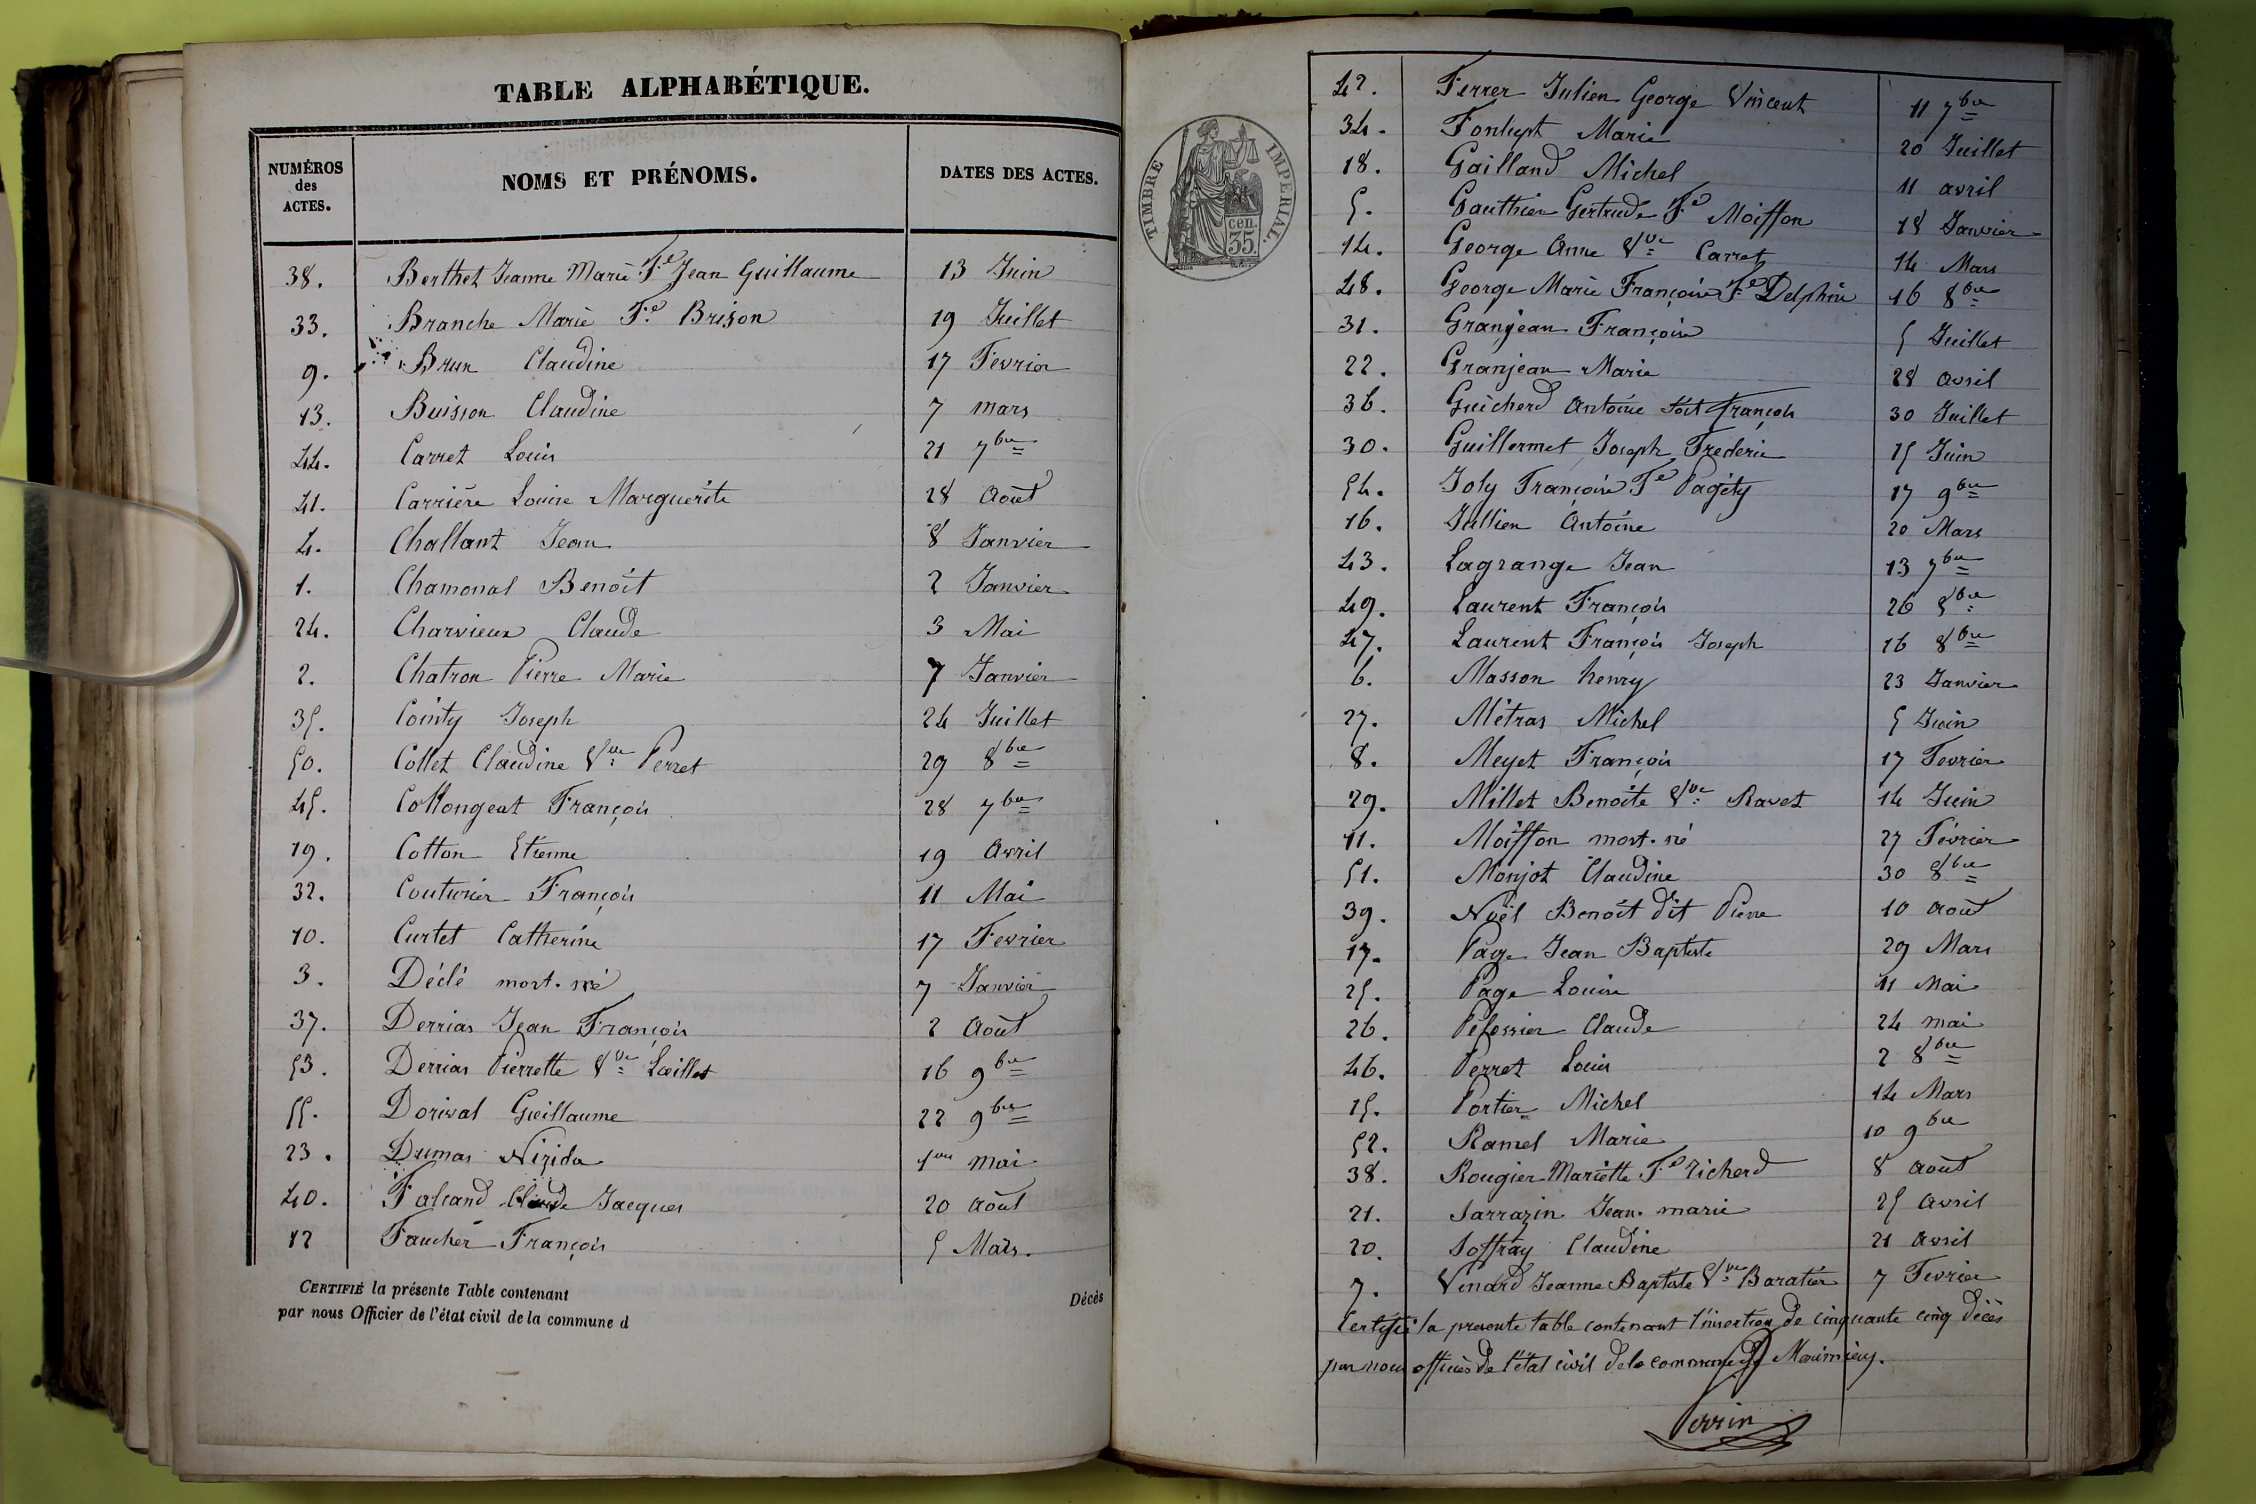 TABLE ALPHABÉTIQUE.
NUMÉROS des ACTES. NOMS ET PRÉNOMS. DATES DES ACTES.
38. Berthet Jeanne Marie Fe Jean Guillaume 13 Juin
33. Branche Marie Fe Brison 19 Juillet
9. Brun Claudine 17 Fevrier
13. Buisson Claudine 7 mars
44. Carret Louis 21 7bre
41. Carrière Louise Marguerite 28 Août
4. Challant Jean 8 Janvier
1. Chamonal Benoit 2 Janvier
24. Charvieux Claude 3 Mai
2. Chatron Pierre Marie 7 Janvier
35. Cointy Joseph 24 Juillet
50. Collet Claudine Vve Perret 29 8bre
45. Collongeat François 28 7bre
19. Cotton Etienne 19 Avril
32. Couturier François 11 Mai
10. Curtet Catherine 17 Fevrier
3. Déclé mort-né 7 Janvier
37. Derrias Jean François 2 Août
53. Derrias Pierrette Vve Lœillet 16 9bre
55. Dorival Guillaume 22 9bre
23. Dumas Nizida 1er mai
40. Falcand Claude Jacques 20 Août
12 Faucher François 5 Mars.
CERTIFIÉ la présente Table contenant Décès
par nous Officier de l'état civil de la commune d
TIMBRE IMPERIAL.
35 cen.
42. Ferrer Julien George Vincent 11 7bre
34. Fonlupt Marie 20 Juillet
18. Gailland Michel 11 avril
5. Gauthier Gertrude Fe Moiffon 18 Janvier
14. George Anne Vve Carret 14 Mars
48. George Marie Françoise Fe Delphin 16 8bre
31. Granjean Françoise 5 Juillet
22. Granjean Marie 28 avril
36. Guicherd Antoine dit François 30 Juillet
30. Guillermet Joseph Frederic 15 Juin
54. Joly Françoise Fe Pagéty 17 9bre
16. Jullien Antoine 20 Mars
43. Lagrange Jean 13 7bre
49. Laurent François 26 8bre
47. Laurent François Joseph 16 8bre
6. Masson henry 23 Janvier
27. Métras Michel 5 Juin
8. Meyet François 17 Fevrier
29. Millet Benoite Vve Ravet 14 Juin
11. Moiffon mort-né 27 Février
51. Monjot Claudine 30 8bre
39. Noël Benoit dit Pierre 10 août
17. Page Jean Baptiste 29 Mars
25. Page Louise 11 Mai
26. Péfessier Claude 24 mai
46. Perret Louis 2 8bre
15. Portier Michel 14 Mars
52. Ramel Marie 10 9bre
38. Rougier Mariette Fe Richerd 8 août
21. Sarrazin Jean-marie 25 Avril
20. Soffray Claudine 21 Avril
7. Vinard Jeanne Baptiste Vve Baratier 7 Fevrier
Certifié la presente table contenant l'insertion de cinquante cinq décès
par nous officier de l'état civil de la commune de Meximieux.
Perrin